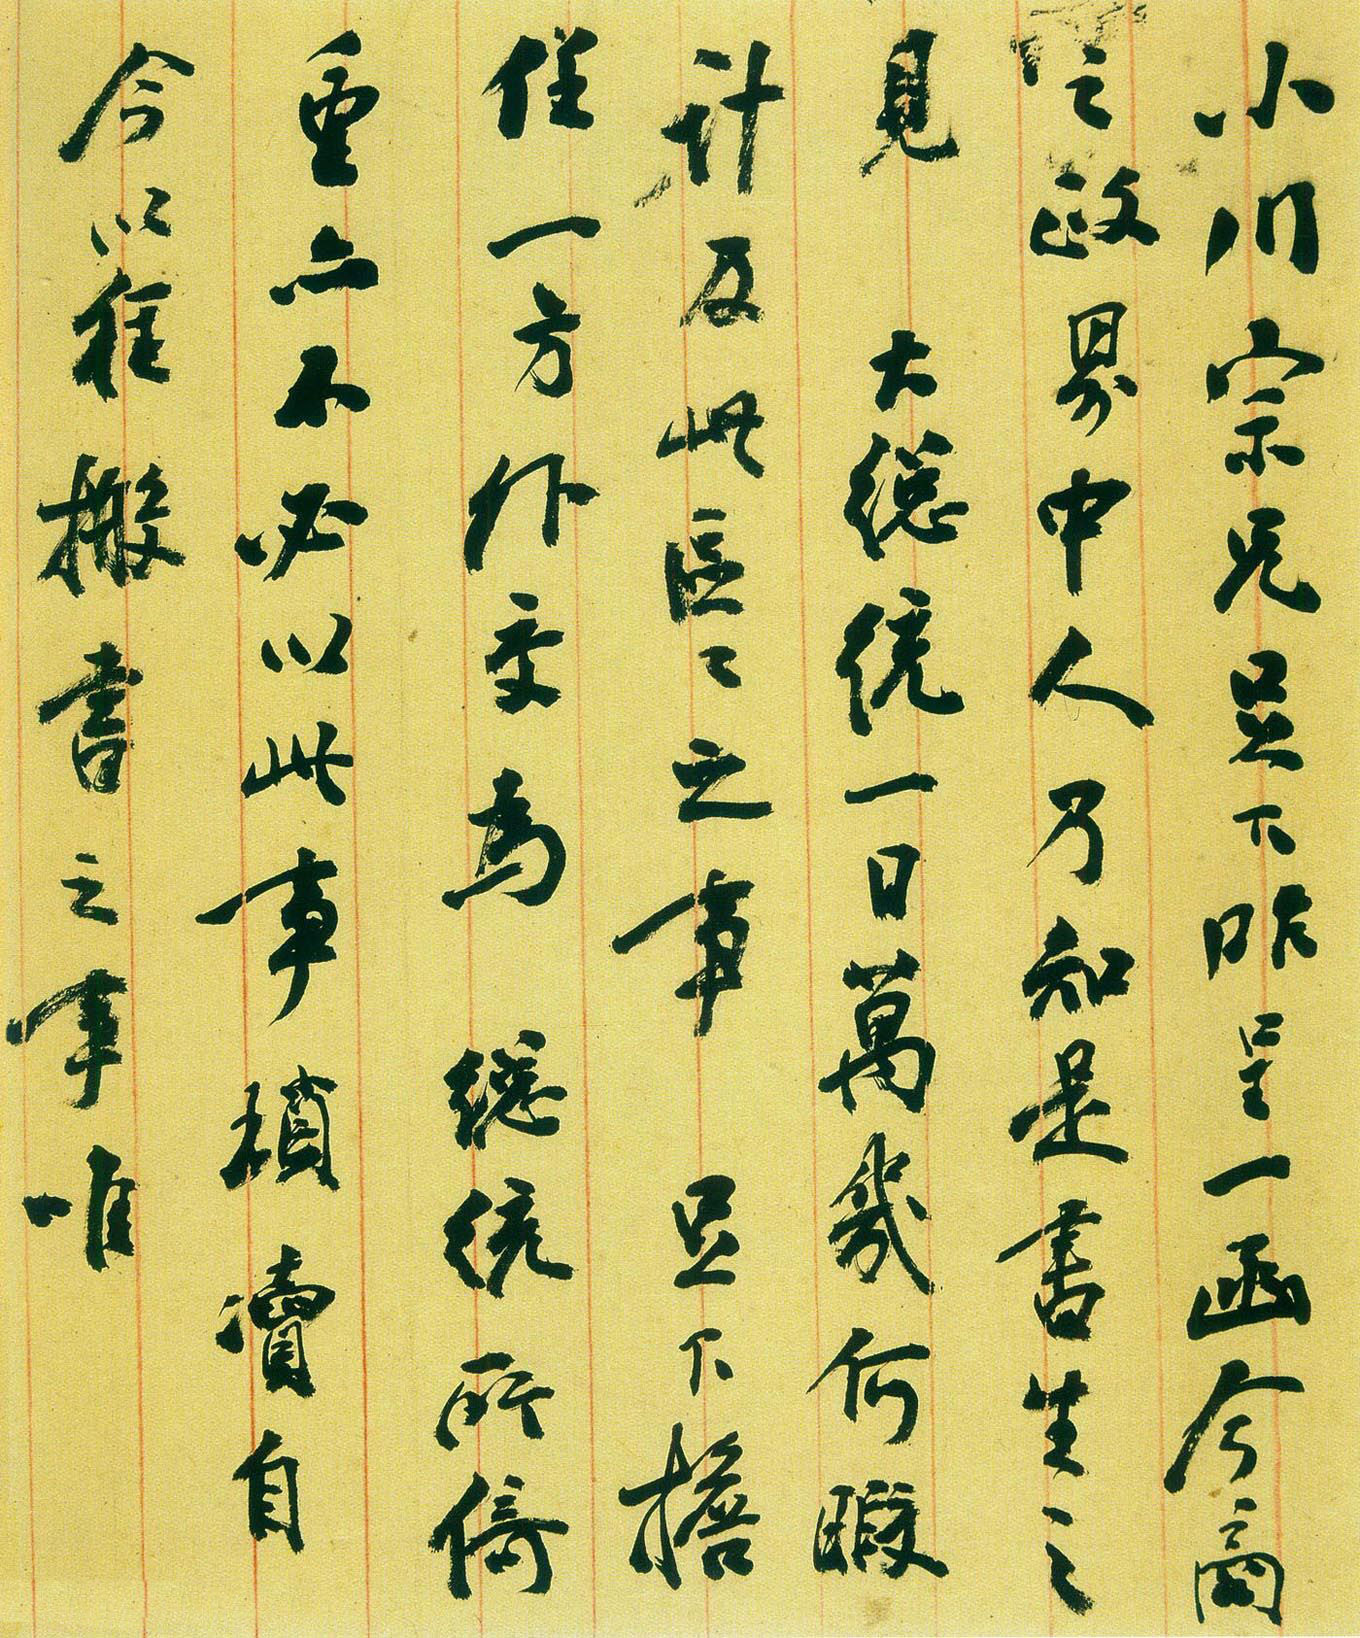 小川宗兄足下昨呈一函今商
之政界中人乃知是書生之
見 大總統一日萬幾何暇
計及此區々之事 足下擔
任一方外交為 總統所倚
重亦不必以此事瑣瀆自
今以往搬書之事唯